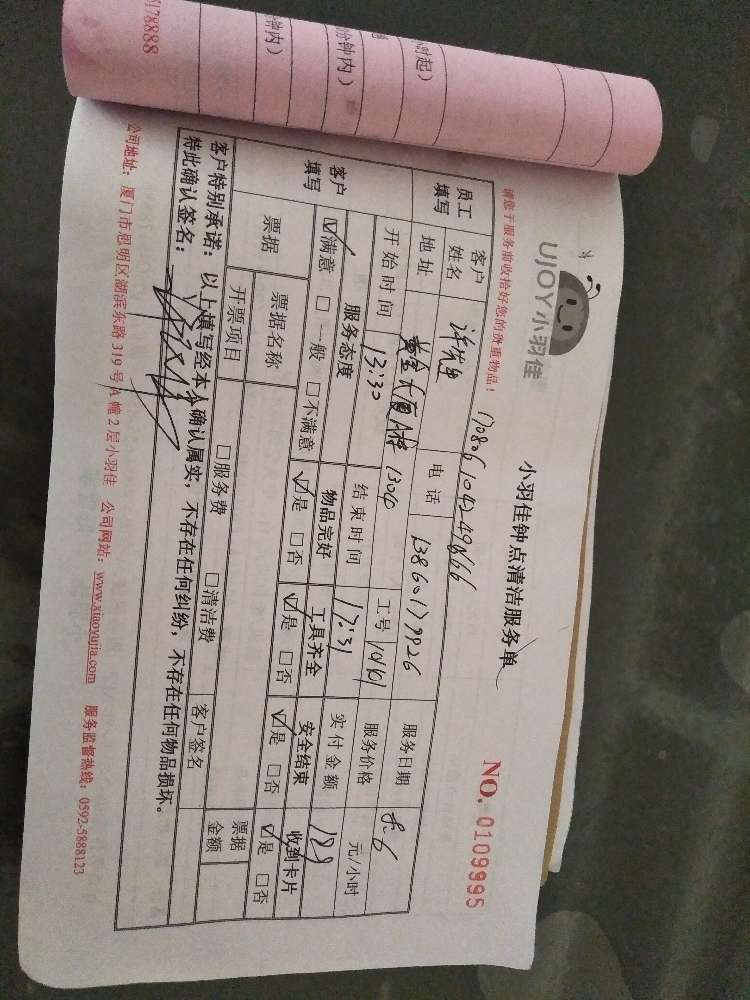 UJOY小羽佳
小羽佳钟点清洁服务单
请您于服务前收拾好您的贵重物品!
NO. 0109995
员工填写
客户姓名 许先生 电话 13860179926 服务日期 8.6
地址 1304D 工号 10101 服务价格 元/小时
开始时间 13:30 结束时间 17:31 实付金额 129
客户填写
服务态度 物品完好 工具齐全 安全结束 收到卡片
☑满意 □一般 □不满意 ☑是 □否 ☑是 □否 ☑是 □否 ☑是 □否
票据 票据名称 票据金额
开票项目 □服务费 □清洁费 客户签名
客户特别承诺:以上填写经本人确认属实,不存在任何纠纷,不存在任何物品损坏。
特此确认签名:
公司地址:厦门市思明区湖滨东路319号A幢2层小羽佳 公司网站:www.xiaoyujia.com 服务监督热线:0592-5888123
小时起)
分钟内)
钟内)
5178888